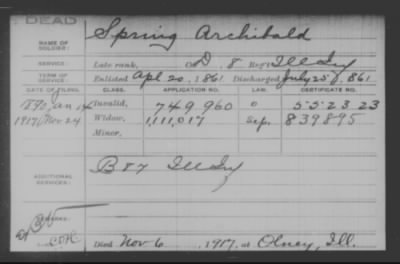 DEAD
NAME OF SOLDIER: Spring Archibald
SERVICE: Late rank, Co D, 8 Reg't Ill Inf
TERM OF SERVICE: Enlisted Apl 20, 1861 Discharged July 25, 1861
DATE OF FILING. CLASS. APPLICATION NO. LAW. CERTIFICATE NO.
Jan Invalid, 749960 552323
1917 Nov. 24 Widow, 1,111,017 Sep. 839895
Minor.
ADDITIONAL SERVICES: B 87 Ill Inf
Died Nov 6, 1917, at Olney, Ill.